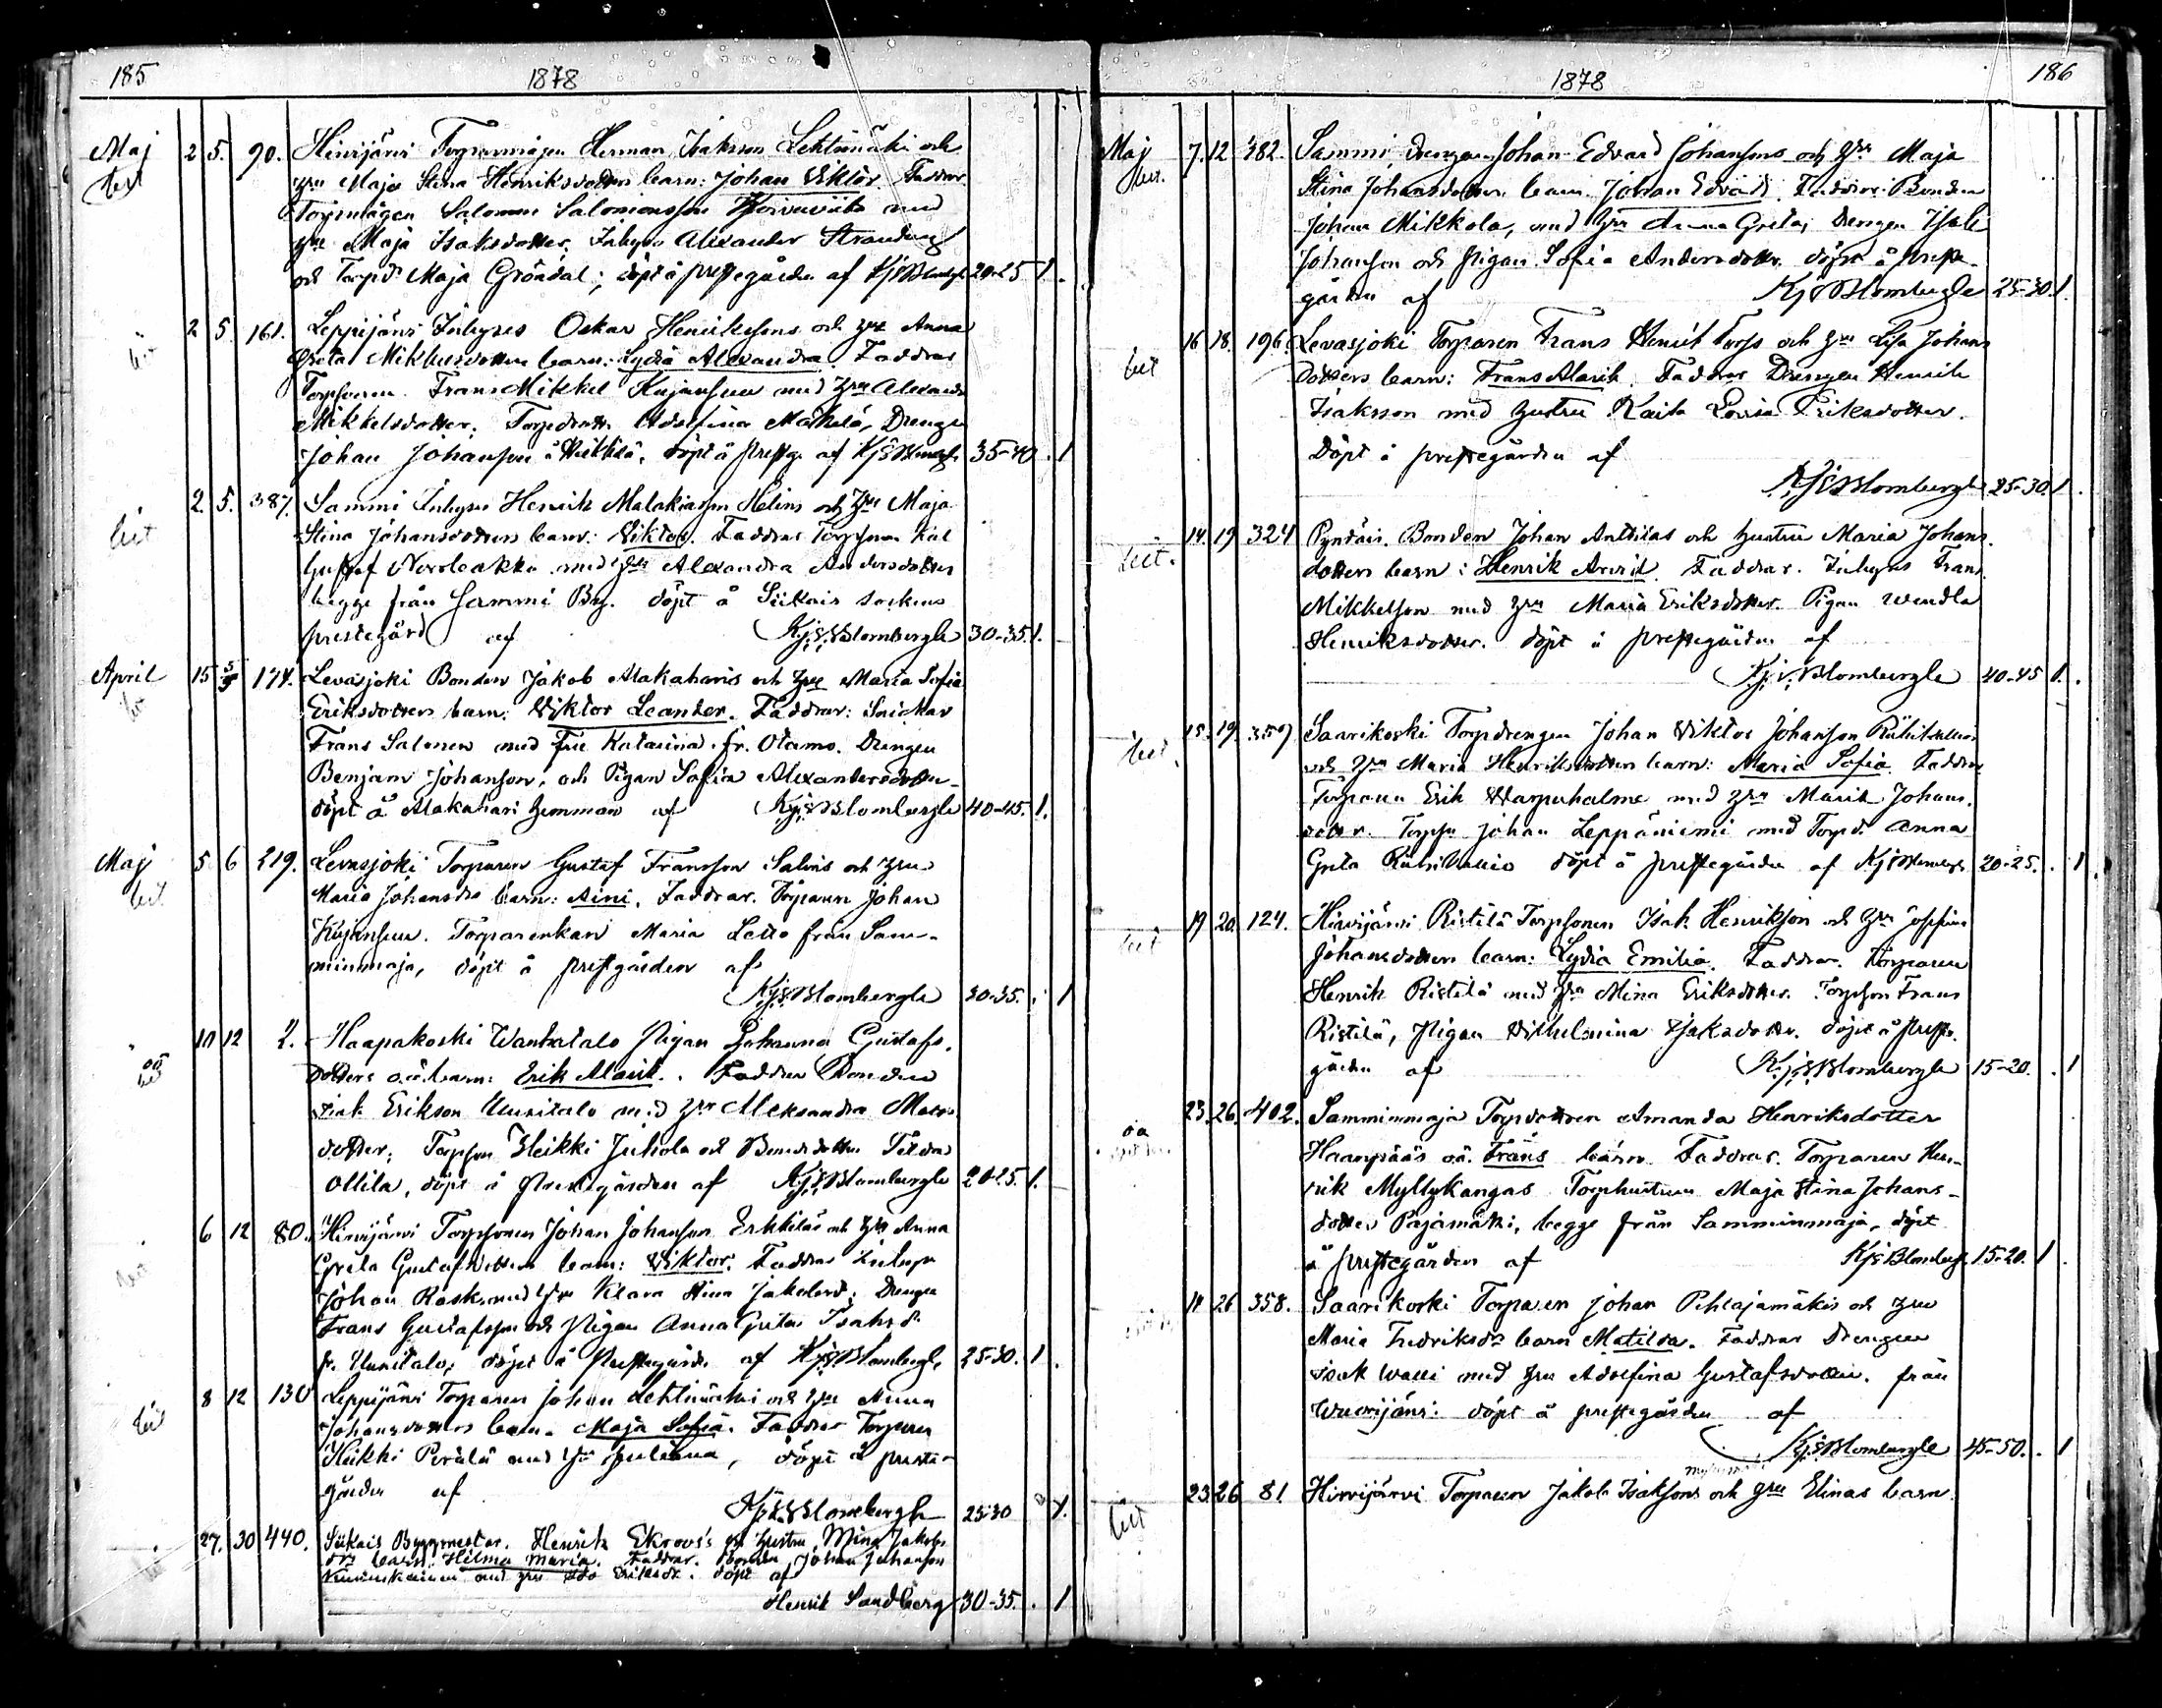 185
1878
Maj 2 5. 90. Hirvijärvi Torparmågen Herman Isaksson Lehtimäki och
hru Maja Stina Henriksdotters barn: Johan Viktor Faddrar
Torpmågen Salomon Salomonsson med
hru Maja Isaksdotter. Inhyses Alexander Strandberg
och Torpd. Maja Gröndal; döpt å prestegården af Kj S Blombergh 20-25 1.
2 5. 161. Leppijärvi Inhyses Oskar Henriksons och hru Anna
Greta Mikkelsdotters barn: Lydia Alexandra. Faddrar
Torpsonen Frans Mikkel Kujansuu med hru Alexandra
Mikkelsdotter. Torpdottr. Adolfina Mäkelä, Drengen
Johan Johansson å Mikkilä. döpt å prestg. af Kj S Blombergh 35-40 . 1
2. 5. 387. Sammi Inhyses Henrik Malakiasson Helins och hru Maja
Stina Johansdotters barn: Viktor. Faddrar Torpsonen Kal
Gustaf Noroloakka med hru Alexandra Andersdotter
begge från Sammi By. döpt å Siikais sockens
prestegård af Kj. S. Blombergh 30-35. 1.
April 15 5 174. Levasjoki Bonden Jakob Alakaharis och hru Maria Sofia
Eriksdotters barn: Viktor Leander. Faddrar: Snickar
Frans Salonen med fru Katarina fr. Otamo. Drengen
Benjam Johanson, och Pigan Sofia Alexandersdotter
döpt å Alakahari hemman af Kj S Blombergh 40-45. 1.
Maj 5 6 219. Levasjoki Torparen Gustaf Fransson Salins och hru
Maria Johansdrs barn: Aini. Faddrar. Torparen Johan
Kujansuu. Torparenkan Maria Letto från Sam-
minmaja, döpt å prestgården af
Kj S Blombergh 30-35. . 1
oä 10 12 2. Haapakoski Wanhatalo Pigan Johanna Gustafs-
dotters o.ä. barn: Erik Alarik. Faddrar Bonden
Isak Erikson Uusitalo med hru Aleksandra
dotter; Torpson Heikki Juhola och Bonddotter Tilda
Ollila, döpt å Prestegården af Kj S Blombergh 20-25. 1.
6 12 80. Hirvijärvi Torpsonen Johan Johanson Erkkiläs och hru Anna
Greta Gustafsdotters barn: Viktor. Faddrar Inhyses
Johan Rask med hru Klara Stina Jakobsd. Drengen
Frans Gustafsson och Pigan Anna Greta Isaksdr
fr. Uusitalo; döpt å Prestegårdn af Kj S Blombergh 25-30. 1.
8 12 130 Leppijärvi Torparen Johan Lehtimäki och hru Anna
Johansdotters barn. Maja Sofia. Faddrar Torparen
Heikki Perälä med hru Juliana, döpt å preste-
gården af
Kj S Blombergh 25-30 1.
27. 30 440. Siikais Byggmestar. Henrik Ekroos's och hustru Mina Jakobs
drs barn. Hilma Maria. Faddrar. Bonden Johan Johanson
med hru Eriksdr. döpt af
Henrik Sandberg 30-35. . 1
186
1878
Maj 7. 12 382. Sammi Drengen Johan Edvard Johansons och hru Maja
Stina Johansdotters barn. Johan Edvard. Faddrar: Bonden
Johan Mikkola, med hru Anna Greta; Drengen Isak
Johanson och Pigan Sofia Andersdottr. döpt å preste-
gården af Kj S Blombergh 25-30. 1.
16 18. 196. Levasjoki Torparen Frans Henrik Torps och hru Lisa Johans
dotters barn: Frans Alarik. Faddrar Drengen Henrik
Isaksson med hustru Kaisa Lovisa Eriksdotter.
Döpt å prestegården af
Kj S Blombergh 25-30 1.
14. 19 324 Pyntäis. Bonden Johan Anttilas och hustru Maria Johans.
dotters barn: Henrik Arvid. Faddrar. Inhyses Frans
Mikkelson med hru Maria Eriksdotter. Pigan Wendla
Henriksdotter. döpt å prestegården af
Kj S Blombergh 40-45 1.
15. 19. 359 Saarikoski Torpdrengen Johan Viktor Johanson
och hru Maria Henriksdotters barn: Maria Sofia. Faddrar
Torparen Erik Warpuhalme med hru Maria Johans.
dotter. Torpsn Johan Leppäniemi med Torpd. Anna
Greta döpt å prestegården af Kj S Blombergh 20-25. . 1
19 20. 124. Hirvijärvi Ristilä Torpsonen Isak Henrikson och hru Josefina
Johansdotters barn: Lydia Emilia. Faddrar. Torparen
Henrik Ristilä med hru Mina Eriksdotter. Torpson Frans
Ristilä, Pigan Vilhelmina Isaksdotter. döpt å preste
gården af Kj S Blombergh 15-20. . 1
oä 23. 26. 402. Samminmaja Torpdottren Amanda Henriksdotter
Haanpääs oä. Frans barn. Faddrar. Torparen Hen-
rik Myllykangas Torphustrun Maja Stina Johans-
dotter Pajamäki, begge från Samminmaja, döpt
å prestegården af Kj S Blombergh 15-20. 1.
14 26 358. Saarikoski Torparen Johan Pihlajamäkis och hru
Maria Fredriksdrs barn Matilda. Faddrar Drengen
Isak Walli med hru Adolfina Gustafsdotter. från
döpt å prestegården af
Kj S Blombergh 45-50. . 1
23 26 81. Hirvijärvi Torparen Jakob Isaksons och hru Elinas barn